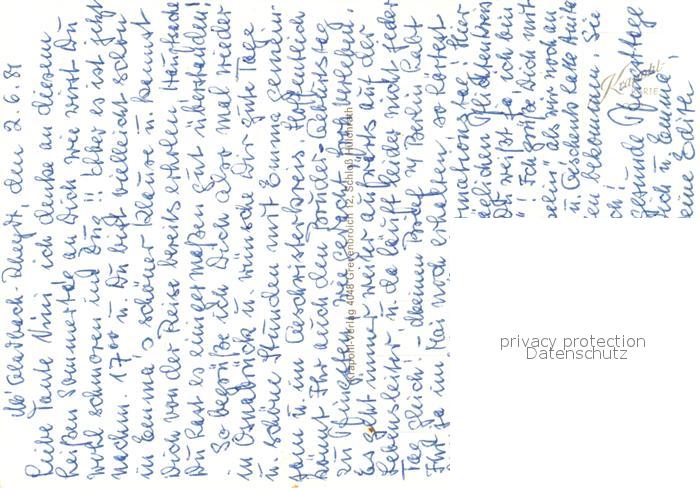 M'Gladbach-Rheydt, den 2.6.81
Liebe Tante Nini ich denke an diesem
heißen Sommertag an Dich wie wirst Du
wohl schmoren in !! Aber es ist jetzt
nachm. 17 oo u. Du bist vielleicht schon
in Emma's schöner Klause u. kannst
Dich von der Reise bereits erholen. Hauptsache
Du hast es einigermaßen gut überstanden!
So begrüße ich Dich also mal wieder
in Osnabrück u. wünsche Dir gute Tage
u. schöne Stunden mit Emma gemein-
sam u. im Geschwisterkreis. Hoffentlich
könnt Ihr auch den Bruder-Geburtstag
zu Pfingsten recht froh verleben.
Es geht immer weiter aufwärts auf der
Lebensleiter u. da läuft leider nicht jeder
Tag gleich! – Deinen Brief aus Berlin habt
Ihr ja im Mai noch erhalten, so
Hier
weißt Du ja, ich bin
! Ich grüße Dich mit
als wir noch an
u. Geschenk hatte Anita
bekommen. Sie
ich!
gesunde Pfingsttage
Dich u. Emma!
Eure Editha
Krapohl-Verlag 4048 Grevenbroich 12, Schloß Hülchrath
Krapohl-
KARTE
privacy protection
Datenschutz